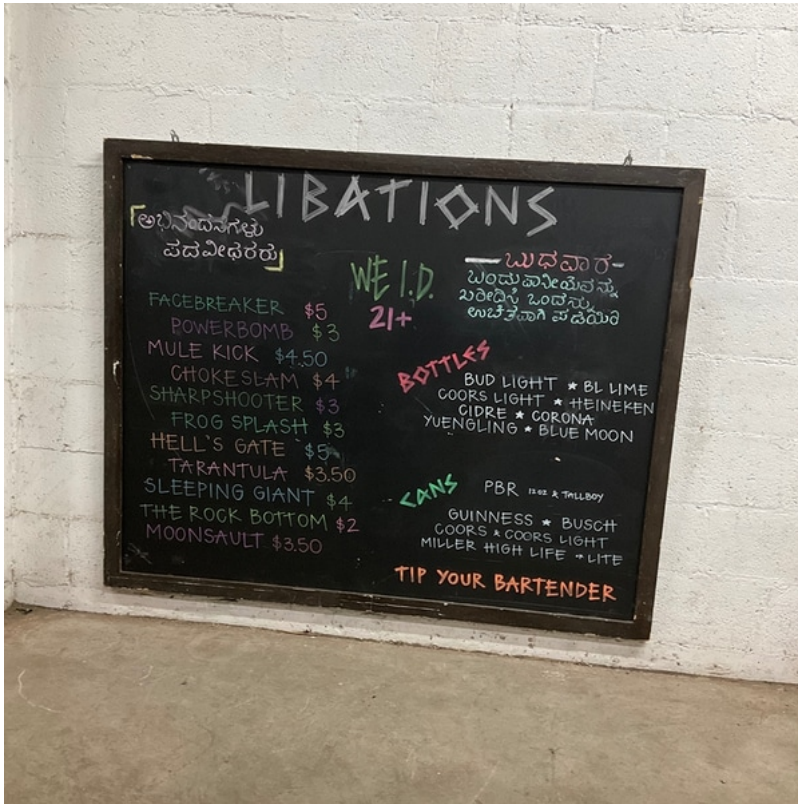 LIBATIONS
ಅಭಿನಂದನೆಗಳು
ಪದವೀಧರರು
WE I.D.
21+
FACEBREAKER $5
POWERBOMB $3
MULE KICK $4.50
CHOKESLAM $4
SHARPSHOOTER $3
FROG SPLASH $3
HELL'S GATE $5
TARANTULA $3.50
SLEEPING GIANT $4
THE ROCK BOTTOM $2
MOONSAULT $3.50
— ಬುಧವಾರ-
ಒಂದು ಪಾನೀಯವನ್ನು
ಖರೀದಿಸಿ ಒಂದನ್ನು
ಉಚಿತವಾಗಿ ಪಡೆಯಿರಿ
BOTTLES
BUD LIGHT ★ BL LIME
COORS LIGHT ★ HEINEKEN
CIDRE ★ CORONA
YUENGLING ★ BLUE MOON
CANS
PBR 12 OZ & TALLBOY
GUINNESS ★ BUSCH
COORS ★ COORS LIGHT
MILLER HIGH LIFE ★ LITE
TIP YOUR BARTENDER